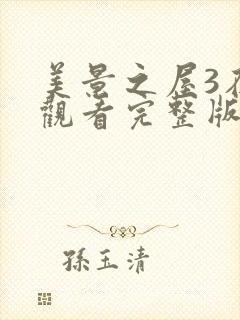 美景之屋3在
觀看完整版
孫玉清